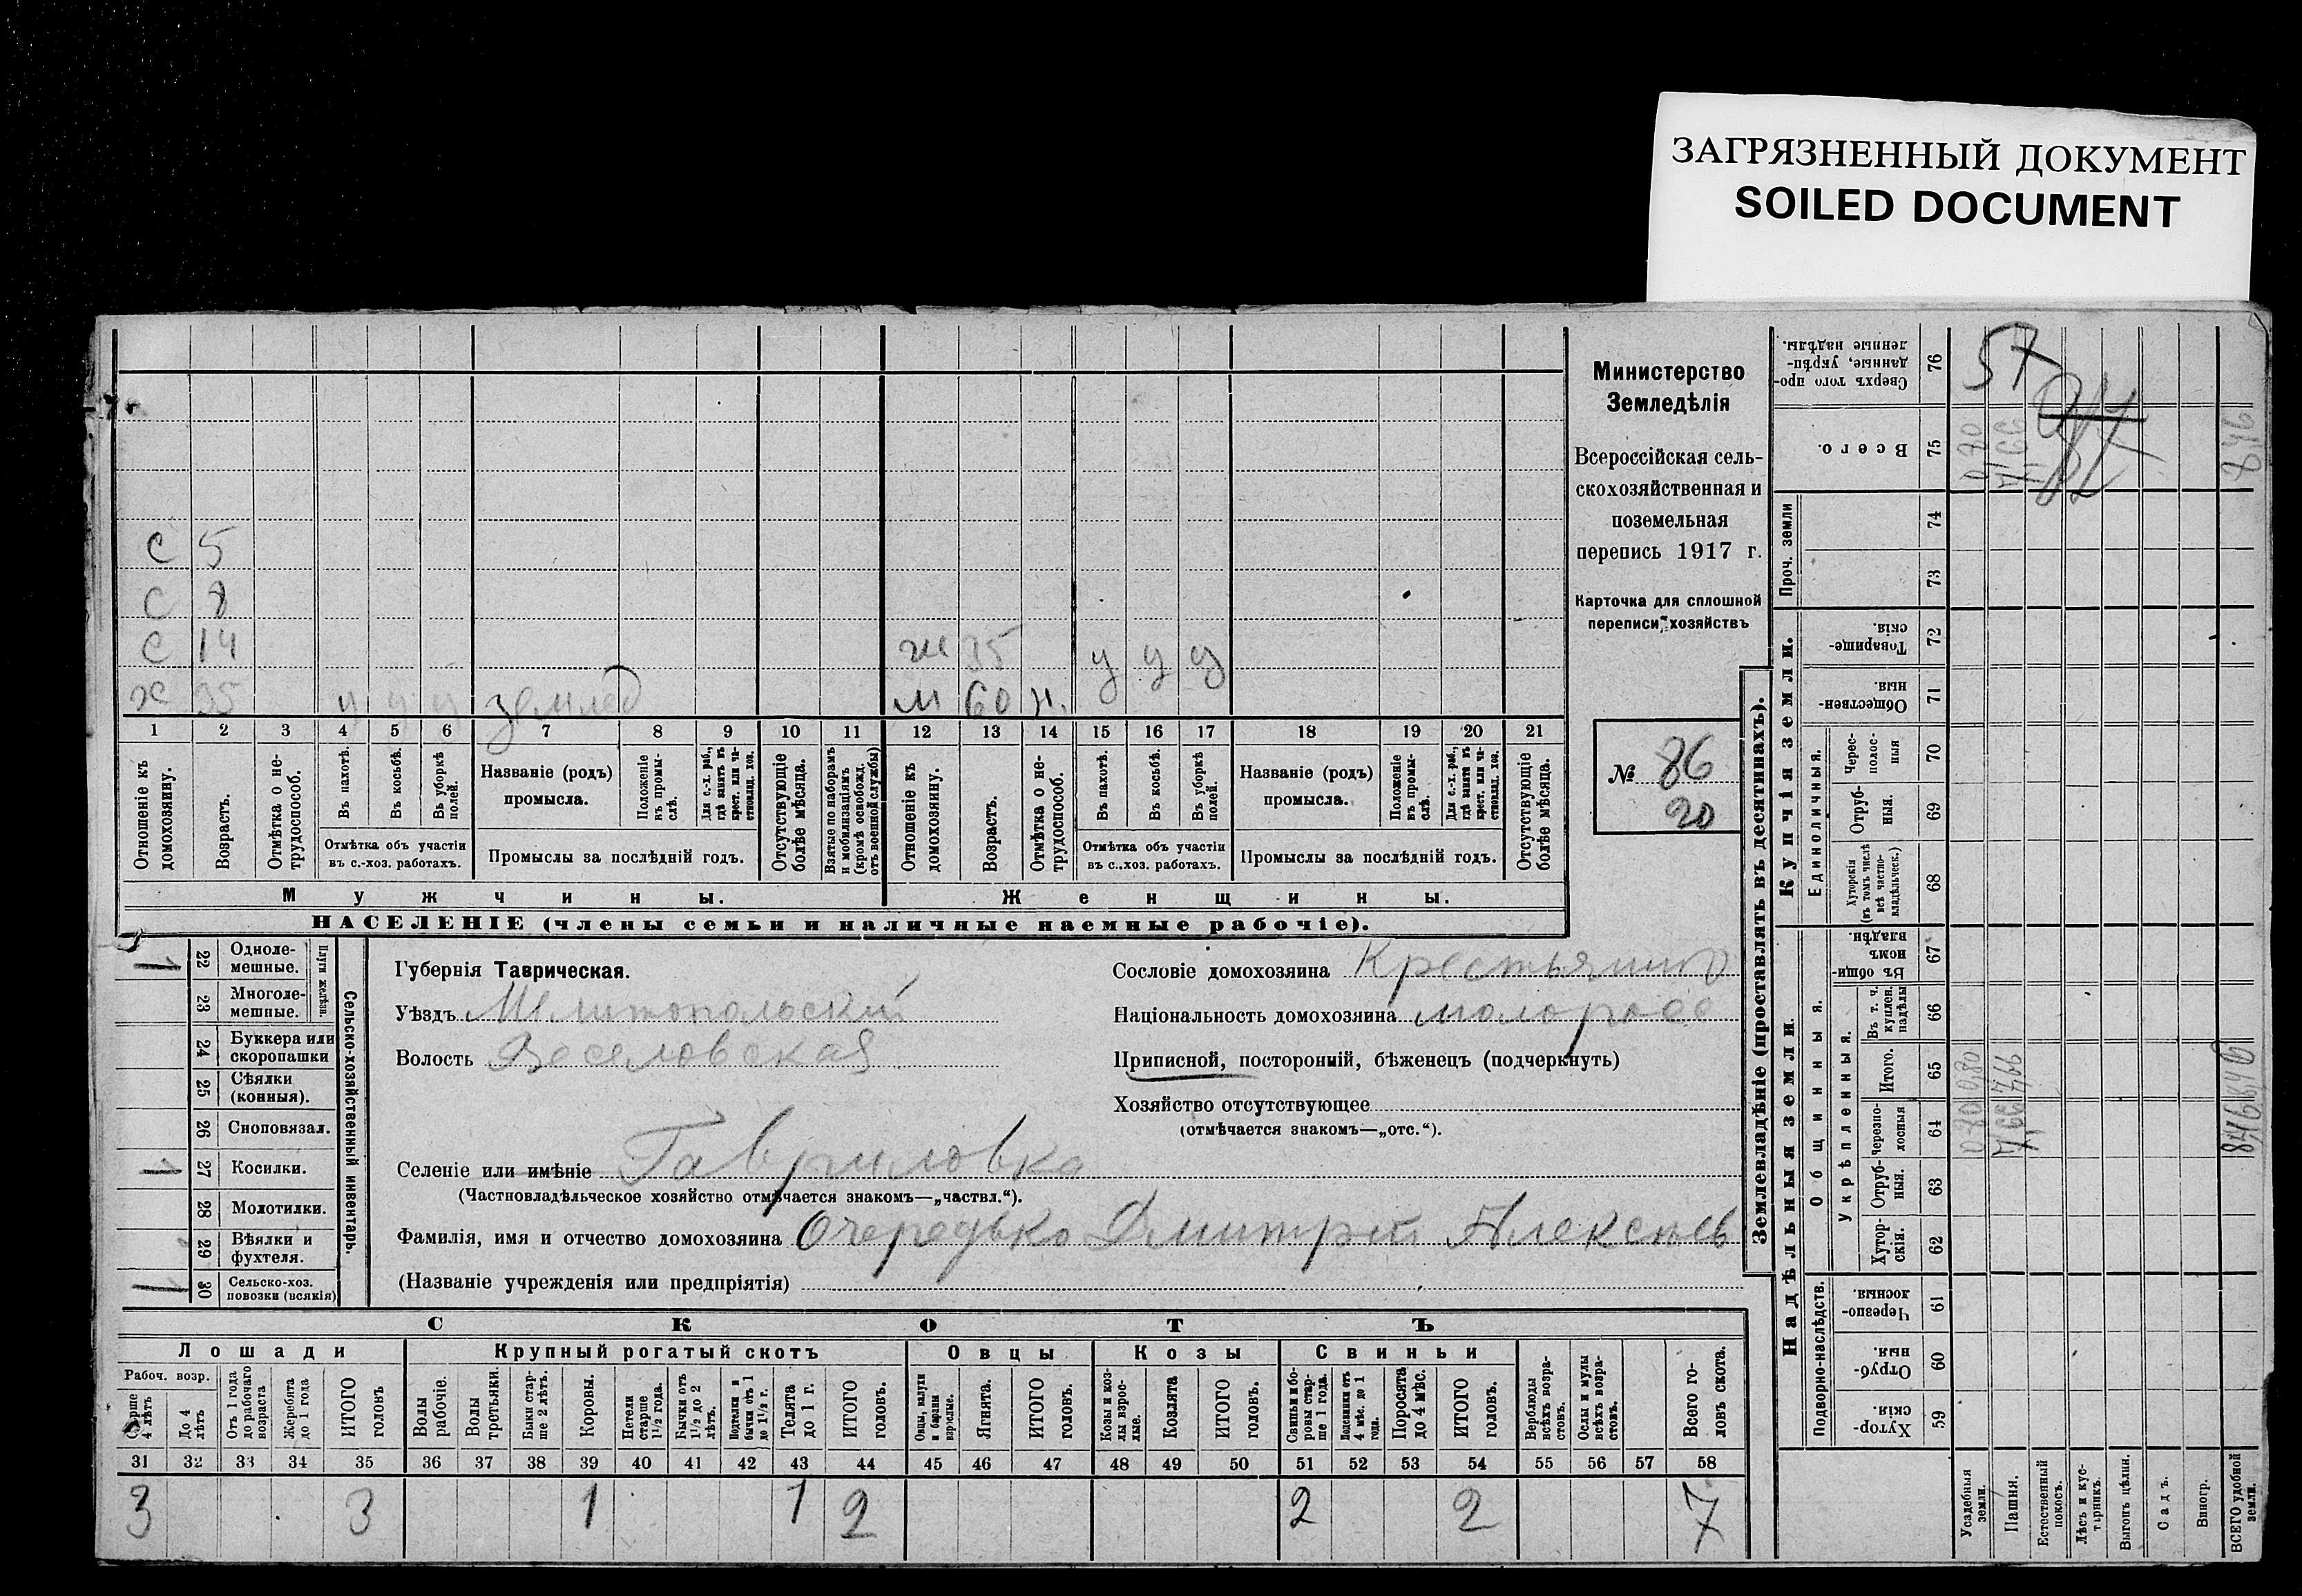 ЗАГРЯЗНЕННЫЙ ДОКУМЕНТ
SOILED DOCUMENT
С 5
С 8
С 14
х 35 у у у землед
ж 35 у у у
м 60 н.
1 2 3 4 5 6 7 8 9 10 11 12 13 14 15 16 17 18 19 20 21
Отношеніе къ домохозяину.
Возрастъ.
Отмѣтка о нетрудоспособ.
Въ пахотѣ.
Въ косьбѣ.
Въ уборкѣ полей.
Отмѣтка объ участіи
въ с.-хоз. работахъ.
Названіе (родъ)
промысла.
Положеніе въ промыслѣ.
Для с.-х. раб., гдѣ занятъ въ крест. или частновлад. хоз.
Промыслы за послѣдній годъ.
Отсутствующіе болѣе мѣсяца.
Взятые по наборамъ и мобилизаціямъ (кромѣ освобожд. отъ военной службы)
Отношеніе къ домохозяину.
Возрастъ.
Отмѣтка о нетрудоспособ.
Въ пахотѣ.
Въ косьбѣ.
Въ уборкѣ полей.
Отмѣтка объ участіи
въ с.-хоз. работахъ.
Названіе (родъ)
промысла.
Положеніе въ промыслѣ.
Для с.-х. раб., гдѣ занята въ крест. или частновлад. хоз.
Промыслы за послѣдній годъ.
Отсутствующіе болѣе мѣсяца.
Мужчины.
Женщины.
НАСЕЛЕНІЕ (члены семьи и наличные наемные рабочіе).
Министерство
Земледѣлія
Всероссійская сель-
скохозяйственная и
поземельная
перепись 1917 г.
Карточка для сплошной
переписи хозяйствъ
№ 86
20
1 22 Одноле-
мешные.
23 Многоле-
мешные.
Плуги желѣзн.
24 Буккера или
скоропашки
25 Сѣялки
(конныя).
26 Сноповязал.
1 27 Косилки.
28 Молотилки.
29 Вѣялки и
фухтеля.
1 30 Сельско-хоз.
повозки (всякія)
Сельско-хозяйственный инвентарь.
Губернія Таврическая.
Уѣздъ Мелитопольскій
Волость Веселовская
Сословіе домохозяина Крестьянинъ
Національность домохозяина малоросс
Приписной, посторонній, бѣженецъ (подчеркнуть)
Хозяйство отсутствующее
(отмѣчается знакомъ—„отс.“).
Селеніе или имѣніе Гавриловка
(Частновладѣльческое хозяйство отмѣчается знакомъ—„частвл.“).
Фамилія, имя и отчество домохозяина Очередько Дмитрій Алексѣев
(Названіе учрежденія или предпріятія)
СКОТЪ
Лошади
Крупный рогатый скотъ
Овцы
Козы
Свиньи
Рабоч. возр.
Старше 4 лѣтъ
До 4 лѣтъ
Отъ 1 года до рабочаго возраста
Жеребята до 1 года
ИТОГО головъ
Волы рабочіе.
Волы третьяки.
Быки старше 2 лѣтъ.
Коровы.
Нетели старше 1½ года.
Бычки отъ 1½ до 2 лѣтъ.
Подтелки и бычки отъ 1 до 1½ г.
Телята до 1 г.
ИТОГО головъ.
Овцы, валухи и бараны взрослые.
Ягнята.
ИТОГО головъ.
Козы и козлы взрослые.
Козлята
ИТОГО головъ.
Свиньи и боровы старше 1 года.
Подсвинки отъ 4 мѣс. до 1 года.
Поросята до 4 мѣс.
ИТОГО головъ.
Верблюды всѣхъ возрастовъ.
Ослы и мулы всѣхъ возрастовъ.
Всего головъ скота.
31 32 33 34 35 36 37 38 39 40 41 42 43 44 45 46 47 48 49 50 51 52 53 54 55 56 57 58
3 3 1 1 2 2 2 7
Землевладѣніе (проставлять въ десятинахъ).
Сверхъ того проданные, укрѣпленные надѣлы. 76
57
Всего. 75
0,70
8,46
Проч. земли
74
73
Купчія земли.
Товарищескія. 72
Общественныя. 71
Единоличныя.
Чересполосныя 70
Отрубныя. 69
Хуторскія (въ томъ числѣ всѣ частновладѣльческ.) 68
Надѣльныя земли.
Общинныя.
Въ общинномъ владѣн. 67
Укрѣпленныя.
Въ т. ч. куплен. надѣлы 66
Итого. 65
Черезполосныя 64
8,46
Отрубныя. 63
Хуторскія. 62
Подворно-наслѣдств.
Черезполосныя 61
Отрубныя 60
Хуторскія 59
Усадебныя земли.
Пашня.
Естественный покосъ.
Лѣсъ и кустарникъ.
Выгонъ цѣлин.
Садъ.
Виногр.
ВСЕГО удобной земли.